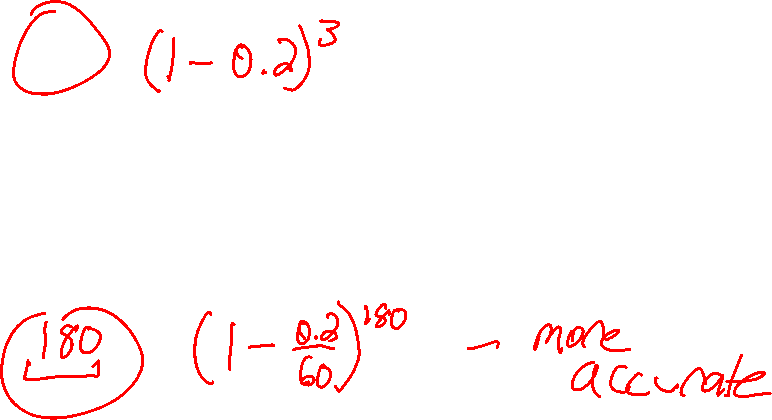 (1 - 0.2)^3
180 (1 - 0.2/60)^180 - more
accurate